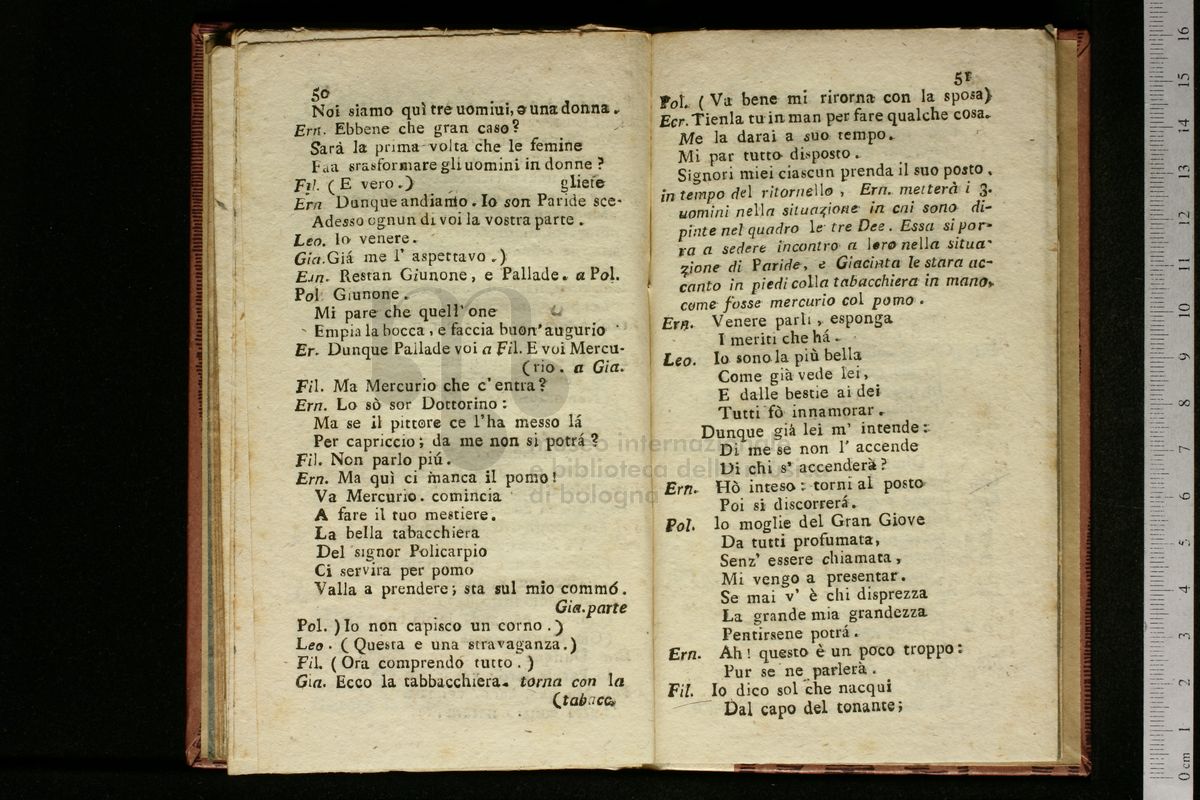 50
Noi siamo quì tre uomini, e una donna.
Ern. Ebbene che gran caso?
Sarà la prima volta che le femine
Faa srasformare gli uomini in donne?
Fil. ( E vero. ) gliere
Ern Dunque andiamo. Io son Paride sce-
Adesso ognun di voi la vostra parte.
Leo. Io venere.
Gia. Giá me l' aspettavo. )
Ern. Restan Giunone, e Pallade. a Pol.
Pol Giunone.
Mi pare che quell' one
Empia la bocca, e faccia buon' augurio
Er. Dunque Pallade voi a Fil. E voi Mercu-
(rio. a Gia.
Fil. Ma Mercurio che c' entra?
Ern. Lo sò sor Dottorino:
Ma se il pittore ce l'ha messo lá
Per capriccio; da me non si potrá?
Fil. Non parlo piú.
Ern. Ma quì ci manca il pomo!
Va Mercurio. comincia
A fare il tuo mestiere.
La bella tabacchiera
Del signor Policarpio
Ci servira per pomo
Valla a prendere; sta sul mio commó.
Gia. parte
Pol. ) Io non capisco un corno. )
Leo. ( Questa e una stravaganza. )
Fil. ( Ora comprendo tutto. )
Gia. Ecco la tabbacchiera. torna con la
(tabacc.
51
Pol. ( Va bene mi rirorna con la sposa)
Ecr. Tienla tu in man per fare qualche cosa.
Me la darai a suo tempo.
Mi par tutto disposto.
Signori miei ciascun prenda il suo posto,
in tempo del ritornello, Ern. metterà i 3.
uomini nella situazione in cui sono di-
pinte nel quadro le tre Dee. Essa si por-
ra a sedere incontro a loro nella situa-
zione di Paride, e Giacinta le stara ac-
canto in piedi colla tabacchiera in mano,
come fosse mercurio col pomo.
Ern. Venere parli, esponga
I meriti che há.
Leo. Io sono la più bella
Come già vede lei,
E dalle bestie ai dei
Tutti fò innamorar.
Dunque già lei m' intende:
Di me se non l' accende
Di chi s' accenderà?
Ern. Hò inteso: torni al posto
Poi si discorrerá.
Pol. Io moglie del Gran Giove
Da tutti profumata,
Senz' essere chiamata,
Mi vengo a presentar.
Se mai v' è chi disprezza
La grande mia grandezza
Pentirsene potrá.
Ern. Ah! questo è un poco troppo:
Pur se ne parlerà.
Fil. Io dico sol che nacqui
Dal capo del tonante;
museo internazionale
e biblioteca della musica
di bologna
0 cm 1 2 3 4 5 6 7 8 9 10 11 12 13 14 15 16